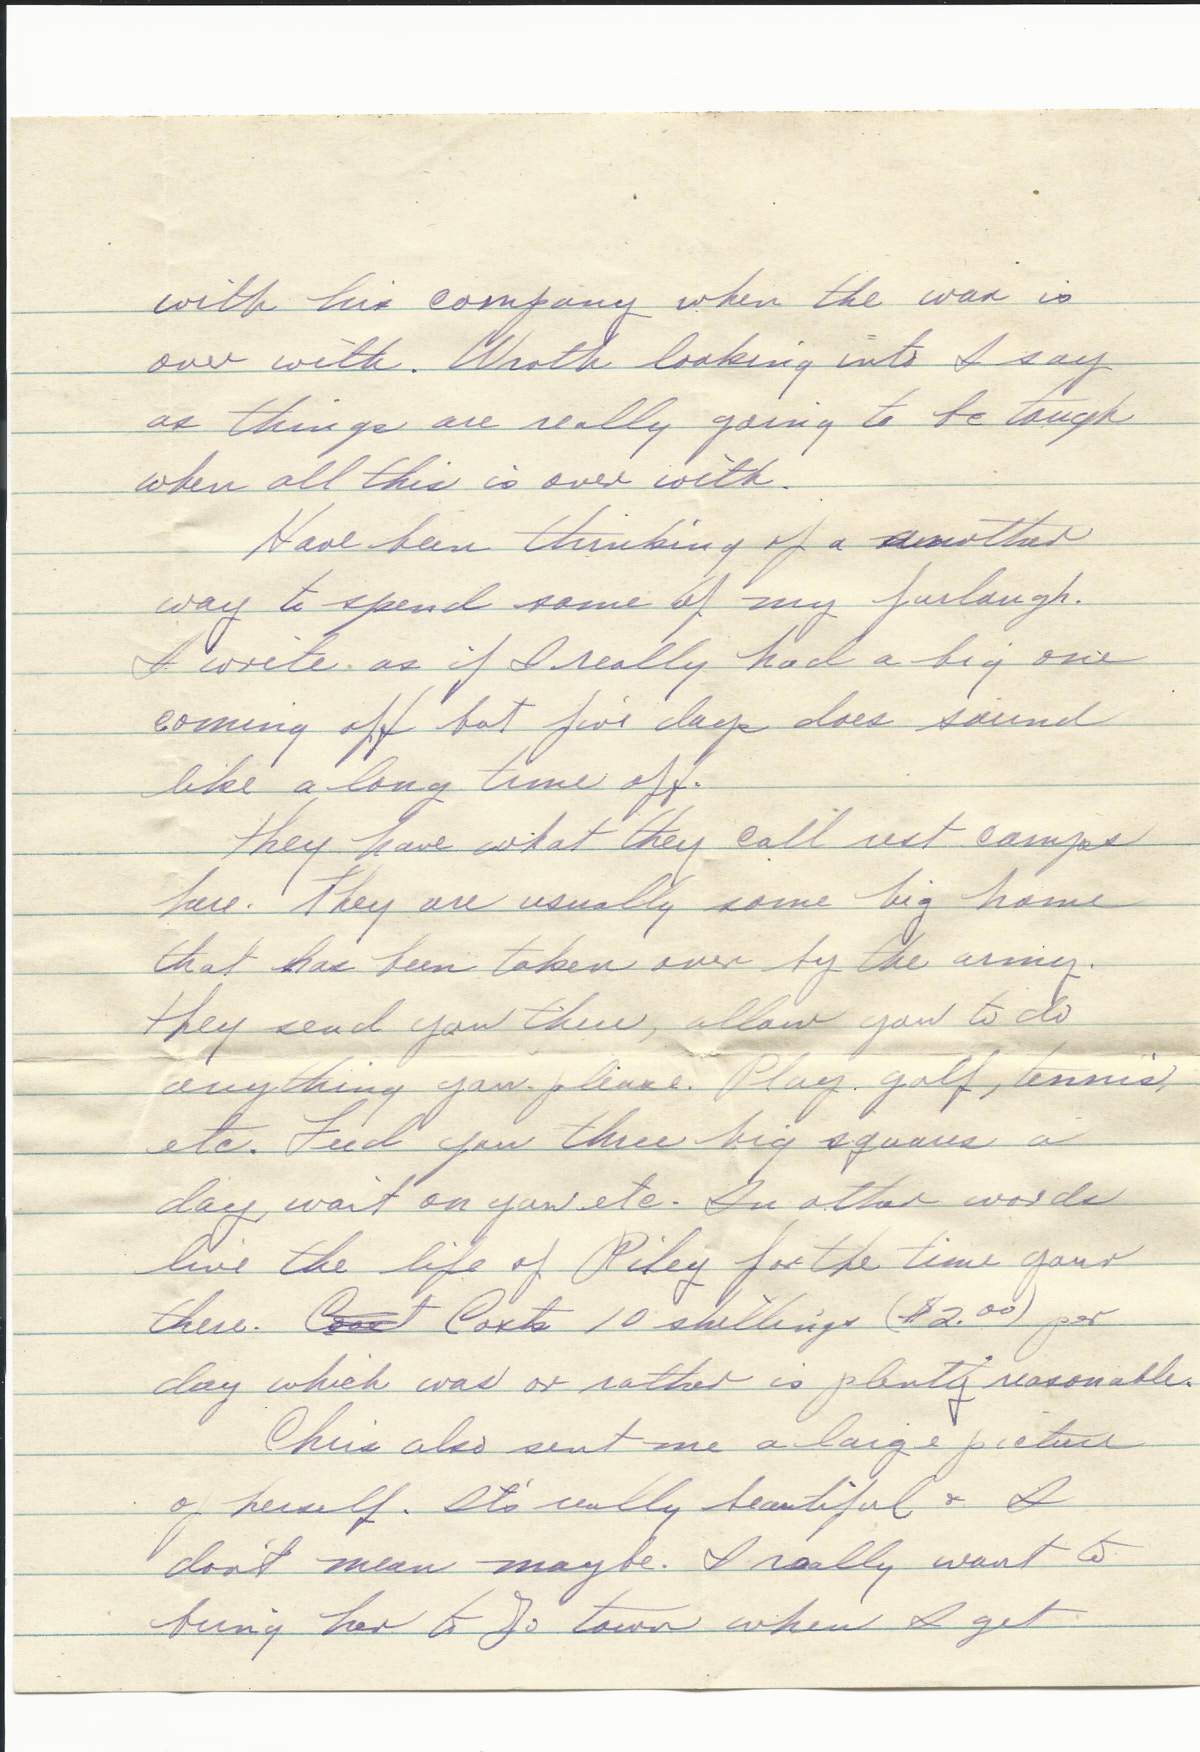 with his company when the war is
over with. Wroth looking into I say
as things are really going to be tough
when all this is over with.
Have been thinking of a another
way to spend some of my furlough.
I write as if I really had a big one
coming off but five days does sound
like a long time off.
They have what they call rest camps
here. They are usually some big home
that has been taken over by the army.
They send you there, allow you to do
anything you please. Play golf, tennis,
etc. Feed you three big squares a
day, wait on you etc. In other words
live the life of Riley for the time your
there. Cost Costs 10 shillings ($2.00) per
day which was or rather is plenty reasonable.
Chris also sent me a large picture
of herself. It's really beautiful & I
don't mean maybe. I really want to
bring her to Jo town when I get